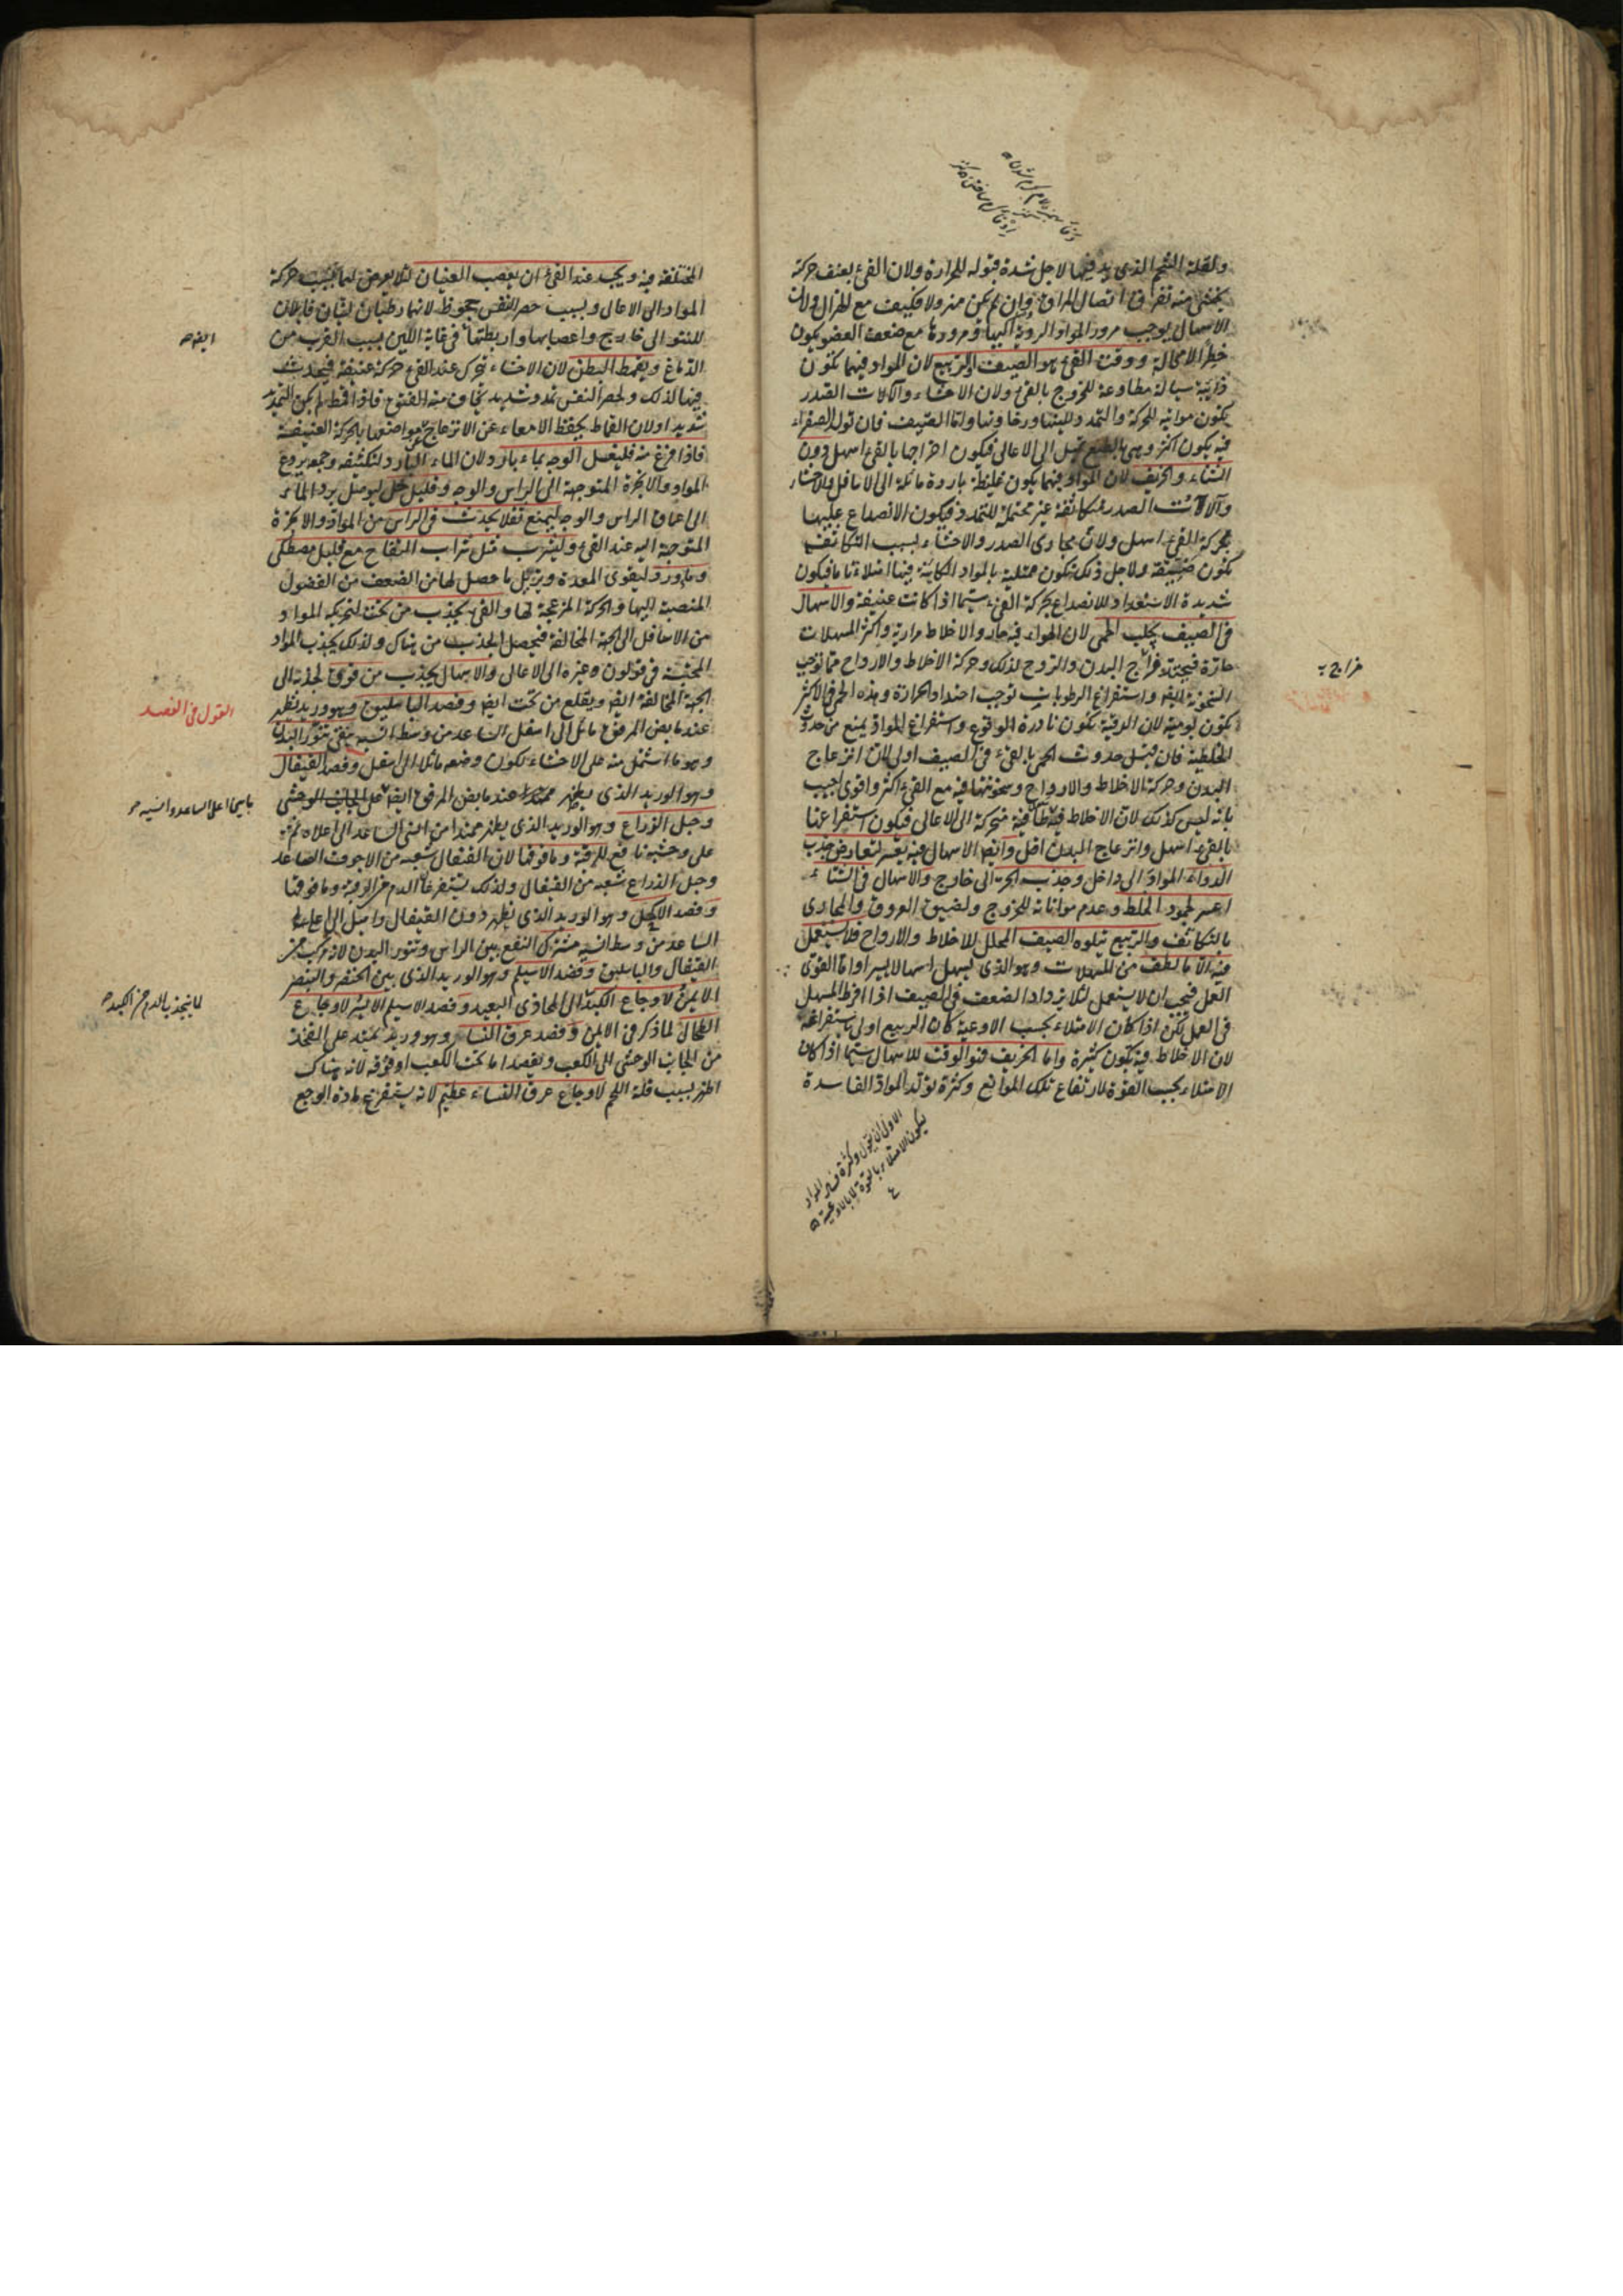 ولقلة الشحم الذى يذ فيها لاجل شدة قبوله للحرارة ولان القئ بعنف حركة
يخشى منه تفرق اتصال المراق وان لم يكن مهزولا فكيف مع الهزال ولان
الاسهال يوجب مرور المواد الردية اليها ومرورها مع ضعف العضو يكون
خطرا لا محالة ووقت القئ هو الصيف والربيع لان المواد فيهما تكون
ذايبة سيالة مطاوعة للخروج بالقئ ولان الاحشاء وآلات الصدر
يكون مواتيه للحركة والتمدد للينها ورخاوتها واما الصيف فان تولد الصفراء
فيه يكون اكثر وهى بالطبع تميل الى الاعالى فيكون اخراجها بالقئ اسهل دون
الشتاء والخريف لان المواد فيهما يكون غليظة باردة مائلة الى الاسافل والاحشاء
وآلات الصدر متكاثفة غير محتملة للتمدد فيكون الانصداع عليها
بحركة القئ اسهل ولان مجارى الصدر والاحشاء بسبب التكاثف
تكون ضيقة ولاجل ذلك تكون ممتلية بالمواد الكاينة فيها امتلاء تاما فيكون
شديدة الاستعداد للانصداع بحركة القئ سيما اذا كانت عنيفة والاسهال
فى الصيف يجلب الحمى لان الهواء فيه حار والاخلاط مرارية واكثر المسهلات
حارة فيحتد مزاج البدن والروح لذلك وحركة الاخلاط والارواح مما توجب
السخونة ايضا واستفراغ الرطوبات توجب احتداد الحرارة وهذه الحمى فى الاكثر
تكون يومية لان الدقية تكون نادرة الوقوع واستفراغ المواد يمنع من حدوث
الخلطية فان قيل حدوث الحمى بالقئ فى الصيف اولى لان انزعاج
البدن وحركة الاخلاط والارواح وسخونتها فيه مع القئ اكثر واقوى اجيب
بانه ليس كذلك لان الاخلاط فيه طافية متحركة الى الاعالى فيكون استفراغها
بالقئ اسهل وانزعاج البدن اقل وايضا الاسهال فيه يعسر لتعارض جذب
الدواء المواد الى داخل وجذب الحر الى خارج والاسهال فى الشتاء
اعسر لجمود الخلط وعدم مواتاته للخروج ولضيق العروق والمجارى
بالتكاثف والربيع تيلوه الصيف المحلل للاخلاط والارواح فلا يستعمل
فيه الا ما لطف من المسهلات وهو الذى يسهل اسهالا يسيرا واما القوى
العمل فيجب ان لا يستعمل لئلا يزداد الضعف فى الصيف اذا افرط المسهل
فى العمل لكن اذا كان الامتلاء بحسب الاوعية كان الربيع اولى باستفراغه
لان الاخلاط فيه يكون كثيرة واما الخريف فهو الوقت للاسهال سيما اذا كان
الامتلاء بحسب القوة لارتفاع تلك الموانع وكثرة تولد المواد الفاسدة
الاولى ان يقول وكثرة فساد المواد
ليكون الامتلاء بالقوة لا بالاوعية
مزاج
المختلفة فيه ويجب عند القئ ان يعصب العينان لئلا يعرض لهما بسبب حركة
المواد الى الاعالى وبسبب حصر النفس جحوظ لانهما رطبتان لينتان قابلتان
للنتو الى خارج واعصابها واربطتها فى غاية اللين بسبب القرب من
الدماغ ويقمط البطن لان الاحشاء تتحرك عند القئ حركة عنيفة فيحدث
فيها لذلك ولحصر النفس تمدد شديد يخاف منه الفتوق فاذا قمط لم يكن التمدد
شديدا ولان القماط يحفظ الامعاء عن الانزعاج عن مواضعها بالحركة العنيفة
فاذا فرغ منه فليغسل الوجه بماء بارد لان الماء البارد لتكثيفه وجمعه يردع
المواد والابخرة المتوجهة الى الراس والوجه وقليل خل ليوصل برد الماء
الى اعماق الراس والوجه ليمنع ثقلا يحدث فى الراس من المواد والابخرة
المتوجهة اليه عند القئ وليشرب مثل شراب التفاح مع قليل مصطكى
وماورد ليقوى المعدة ويزيل ما حصل لها من الضعف من الفضول
المنصبة اليها والحركة المزعجة لها والقئ يجذب من تحت لتحريكه المواد
من الاسافل الى الجهة المخالفة فيحصل الجذب من هناك ولذلك يجذب المواد
المحتبسة فى قولون وغيره الى الاعالى والاسهال يجذب من فوق لجذبه الى
الجهة المخالفة ايضا ويقلع من تحت ايضا وفصد الباسليق وهو وريد يظهر
عند مابض المرفق مائل الى اسفل الساعد من وسط انسيه ينقى تنور البدن
وهو ما اشتمل منه على الاحشاء لكون وضعه مائلا الى اسفل وفصد القيفال
وهو الوريد الذى يظهر عند مابض المرفق ايضا على الجانب الوحشى
وحبل الذراع وهو الوريد الذى يظهر ممتدا من انسى الساعد الى اعلاه ثم
على وحشيه نافع للرقبة وما فوقها لان القيفال شعبة من الاجوف الصاعد
وحبل الذراع شعبة من القيفال ولذلك يستفرغان الدم من الرقبة وما فوقها
وفصد الاكحل وهو الوريد الذى يظهر دون القيفال واميل الى اعلى
الساعد من وسط انسيه مشترك النفع بين الراس وتنور البدن لانه مركب من
القيفال والباسليق وفصد الاسيلم وهو الوريد الذى بين الخنصر والبنصر
الايمن لاوجاع الكبد الى المحاذى البعيد وفصد الاسيلم الايسر لاوجاع
الطحال لما ذكر فى الايمن وفصد عرق النسا وهو وريد يمتد على الفخذ
من الجانب الوحشى الى الكعب ويفصد اما تحت الكعب او فوقه لانه هناك
اظهر بسبب قلة اللحم لاوجاع عرق النساء عظيم لانه يستفرغ مادة الوجع
ايضا
القول فى الفصد
لما ينجذب الدم من الكبد